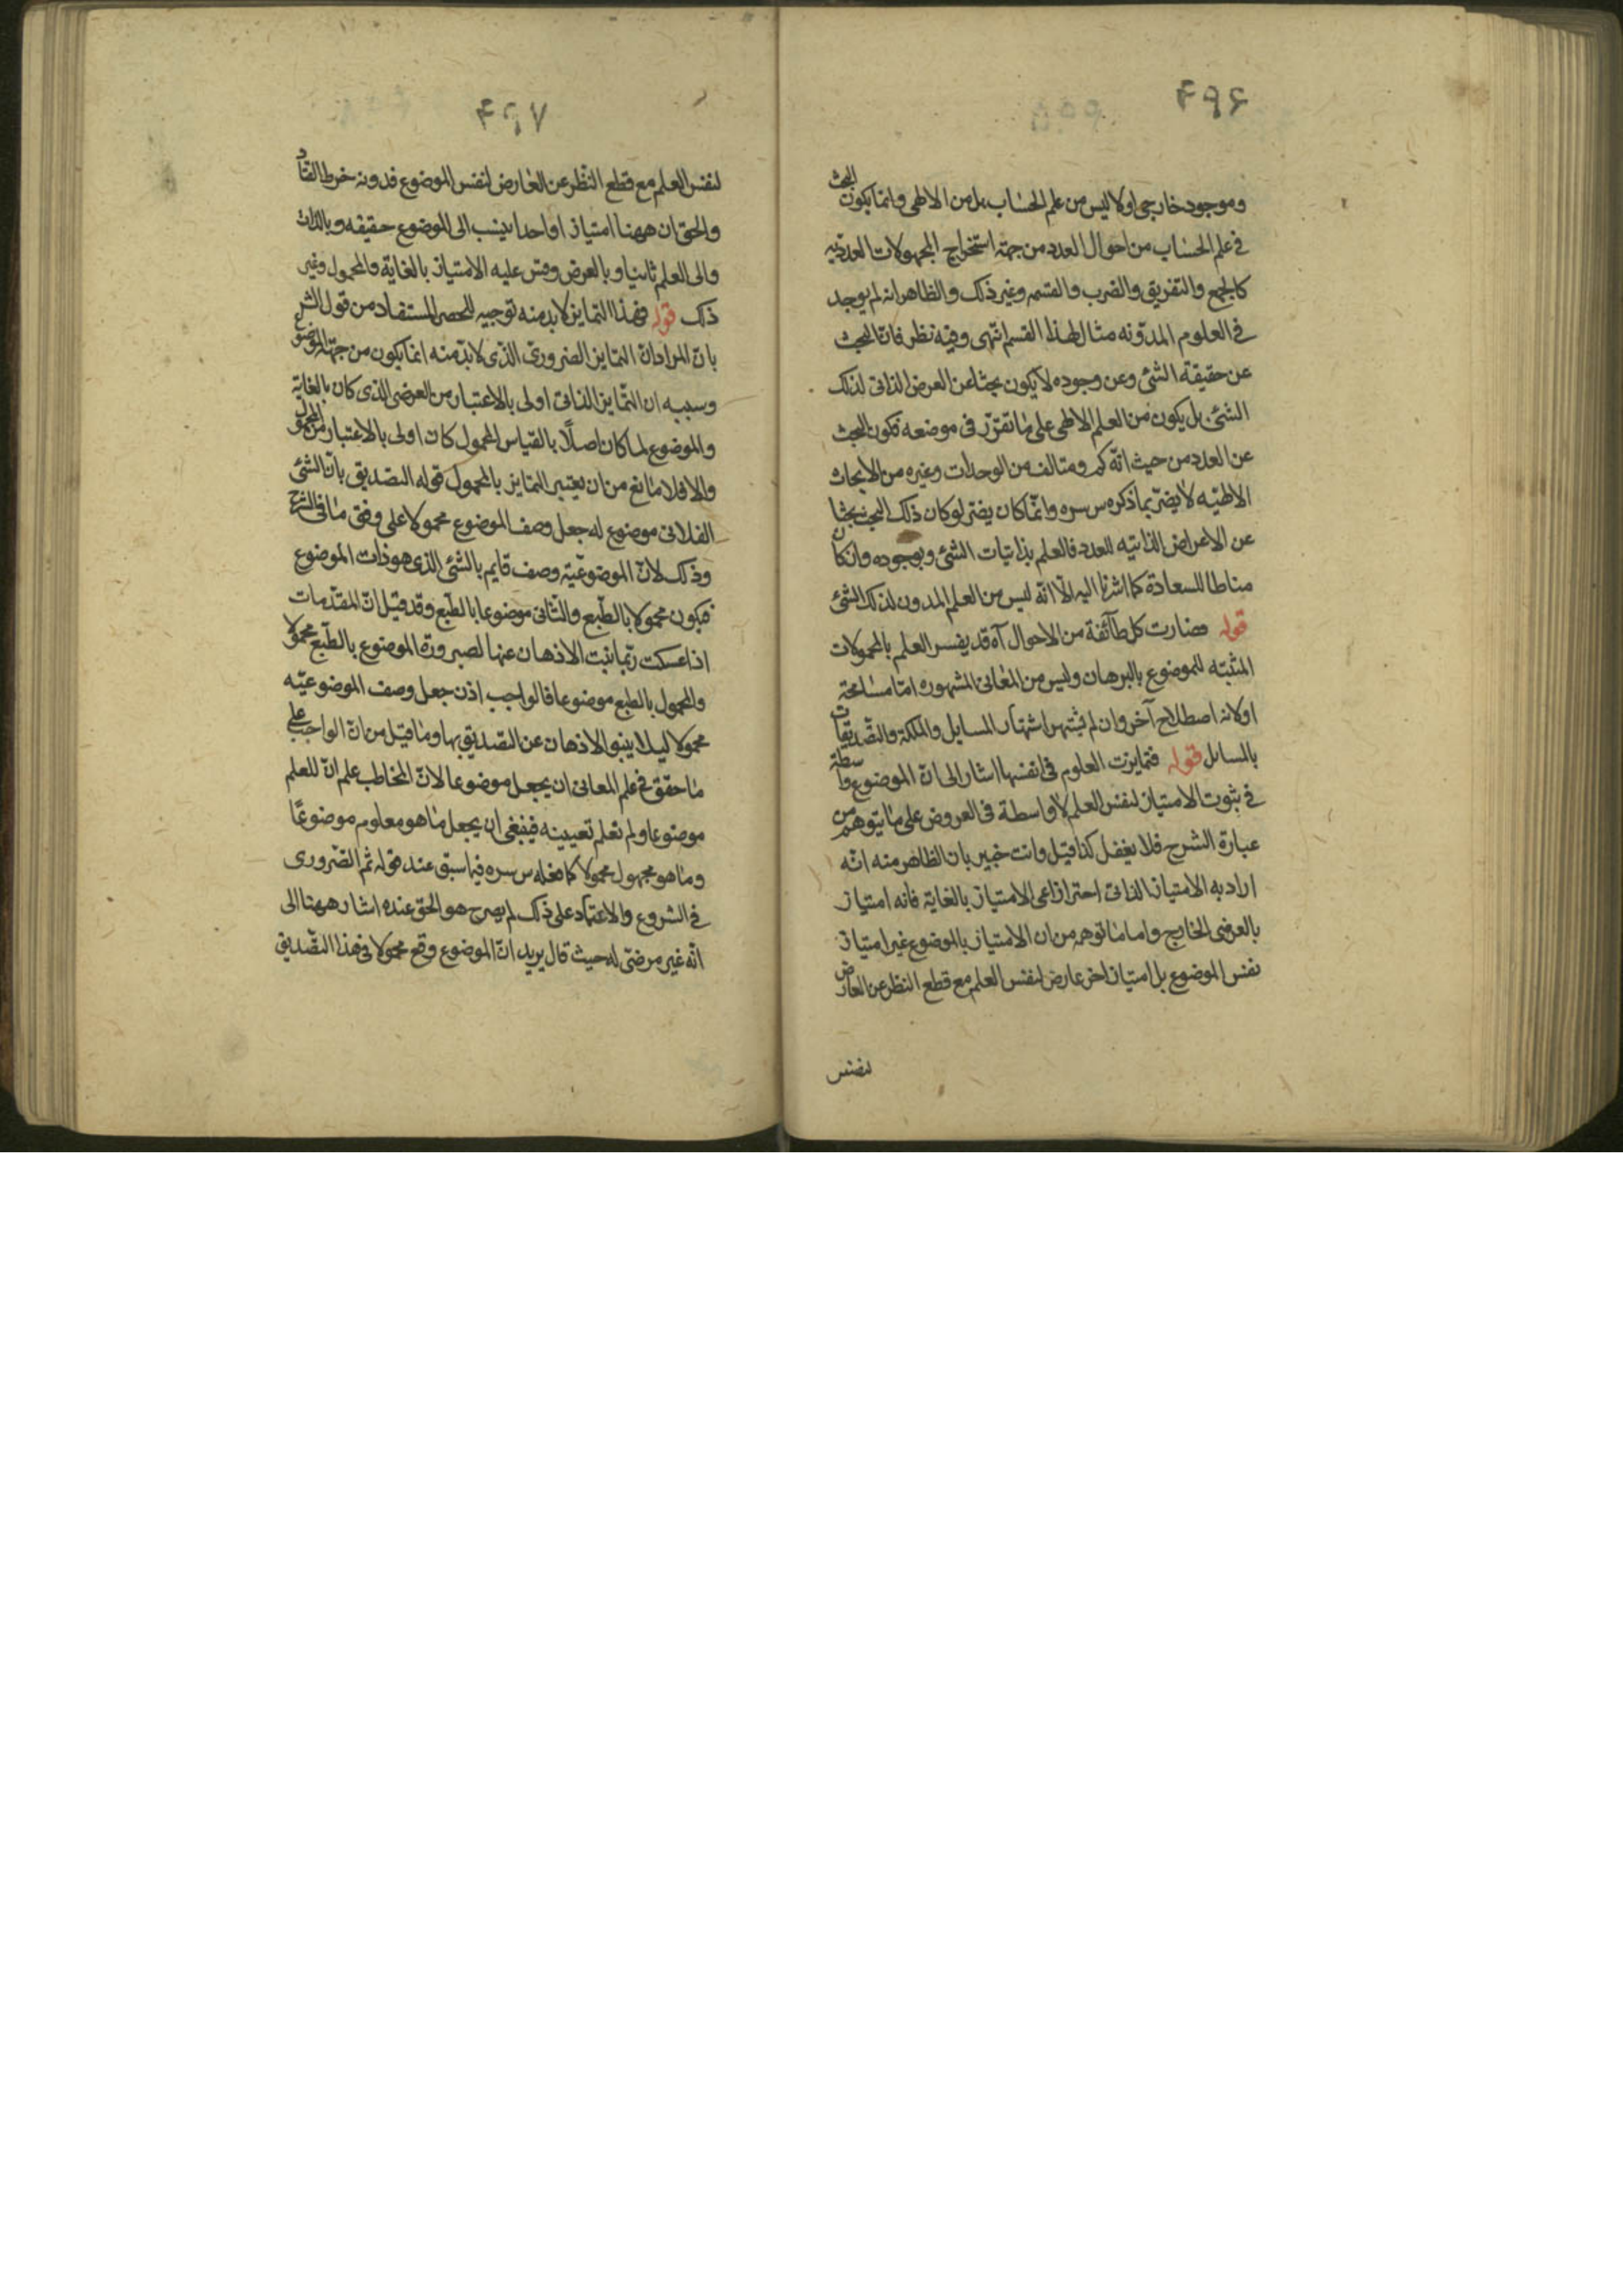 ۴۹۶
وموجود خارجی اولا لیس من علم الحساب بل من الالهی وانما یکون البحث
فی علم الحساب من احوال العدد من جهة استخراج المجهولات العددیه
کالجمع والتفریق والضرب والقسمه وغیر ذلک والظاهر انه لم یوجد
فی العلوم المدوّنه مثال لهذا القسم انتهی وفیه نظر فانّ البحث
عن حقیقة الشئ وعن وجوده لا یکون بحثا عن العرض الذاتی لذلک
الشئ بل یکون من العلم الالهی علی ما تقرّر فی موضعه فکون البحث
عن العدد من حیث انّه کم ومتالف من الوحدات وغیره من الابحاث
الالهیّه لا یضرّ بما ذکره س سره وانّما کان یضر لو کان ذلک البحث بحثا
عن الاعراض الذاتیه للعدد فالعلم بذاتیات الشئ وبوجوده وان کان
مناطا للسعادة کما اشرنا الیه الّا انّه لیس من العلم المدون لذلک الشئ
قوله فصارت کل طآئفة من الاحوال آه قد یفسر العلم بالمحمولات
المثبته للموضوع بالبرهان ولیس من المعانی المشهوره امّا مسامحة
اولانه اصطلاح آخر وان لم یشتهر اشتهار المسایل والملکة والتصدیقات
بالمسائل قوله فتمایزت العلوم فی انفسها اشار الی انّ الموضوع واسطة
فی ثبوت الامتیاز لنفس العلم لا واسطة فی العروض علی ما یتوهم من
عبارة الشرح فلا یغفل کذا قیل وانت خبیر بان الظاهر منه انّه
اراد به الامتیاز الذاتی احترازا عن الامتیاز بالغایة فانه امتیاز
بالعرضی الخارج واما ما توهم من ان الامتیاز بالموضوع غیر امتیاز
نفس الموضوع بل امتیاز اخر عارض لنفس العلم مع قطع النظر عن العارض
لنفس
۴۹۷
لنفس العلم مع قطع النّظر عن العارض لنفس الموضوع فدونه خرط القتاد
والحق ان ههنا امتیازا واحدا ینسب الی الموضوع حقیقه وبالذات
والی العلم ثانیا وبالعرض وقس علیه الامتیاز بالغایة والمحمول وغیر
ذلک قوله فهذا التمایز لا بد منه توجیه للحصر المستفاد من قول الشرح
بانّ المراد انّ التمایز الضروریّ الذّی لا بدّ منه انما یکون من جهة الموضوع
وسببه ان التّمایز الذاتی اولی بالاعتبار من العرضی الذی کان بالغایة
والموضوع لما کان اصلًا بالقیاس المحمول کان اولی بالاعتبار من المحمول
والا فلا مانع من ان یعتبر التمایز بالمحمول قوله التصدیق بانّ الشئ
الفلانی موضوع له جعل وصف الموضوع محمولا علی وفق ما فی الشرح
وذلک لانّ الموضوعیّة وصف قایم بالشئ الذی هو ذات الموضوع
فیکون محمولا بالطّبع والثّانی موضوعا بالطّبع وقد قیل انّ المقدّمات
اذا عسکت ربّما نبت الاذهان عنها لصیرورة الموضوع بالطّبع محمولا
والمحمول بالطبع موضوعا فالواجب اذن جعل وصف الموضوعیّه
محمولا لیلا ینبو الاذهان عن التصدیق بها وما قیل من انّ الواجب علی
ما حقّق فی علم المعانی ان یجعل موضوعا لانّ المخاطب علم انّ للعلم
موضوعا ولم تعلم تعیینه فینبغی ان یجعل ما هو معلوم موضوعًا
وما هو مجهول محمولا کما فعله س سره فیما سبق عند قوله ثم الضّروری
فی الشروع والاعتماد علی ذلک لم یصرح هو الحق عنده اشار ههنا الی
انّه غیر مرضیّ له حیث قال یرید انّ الموضوع وقع محمولا فی هذا التصدیق